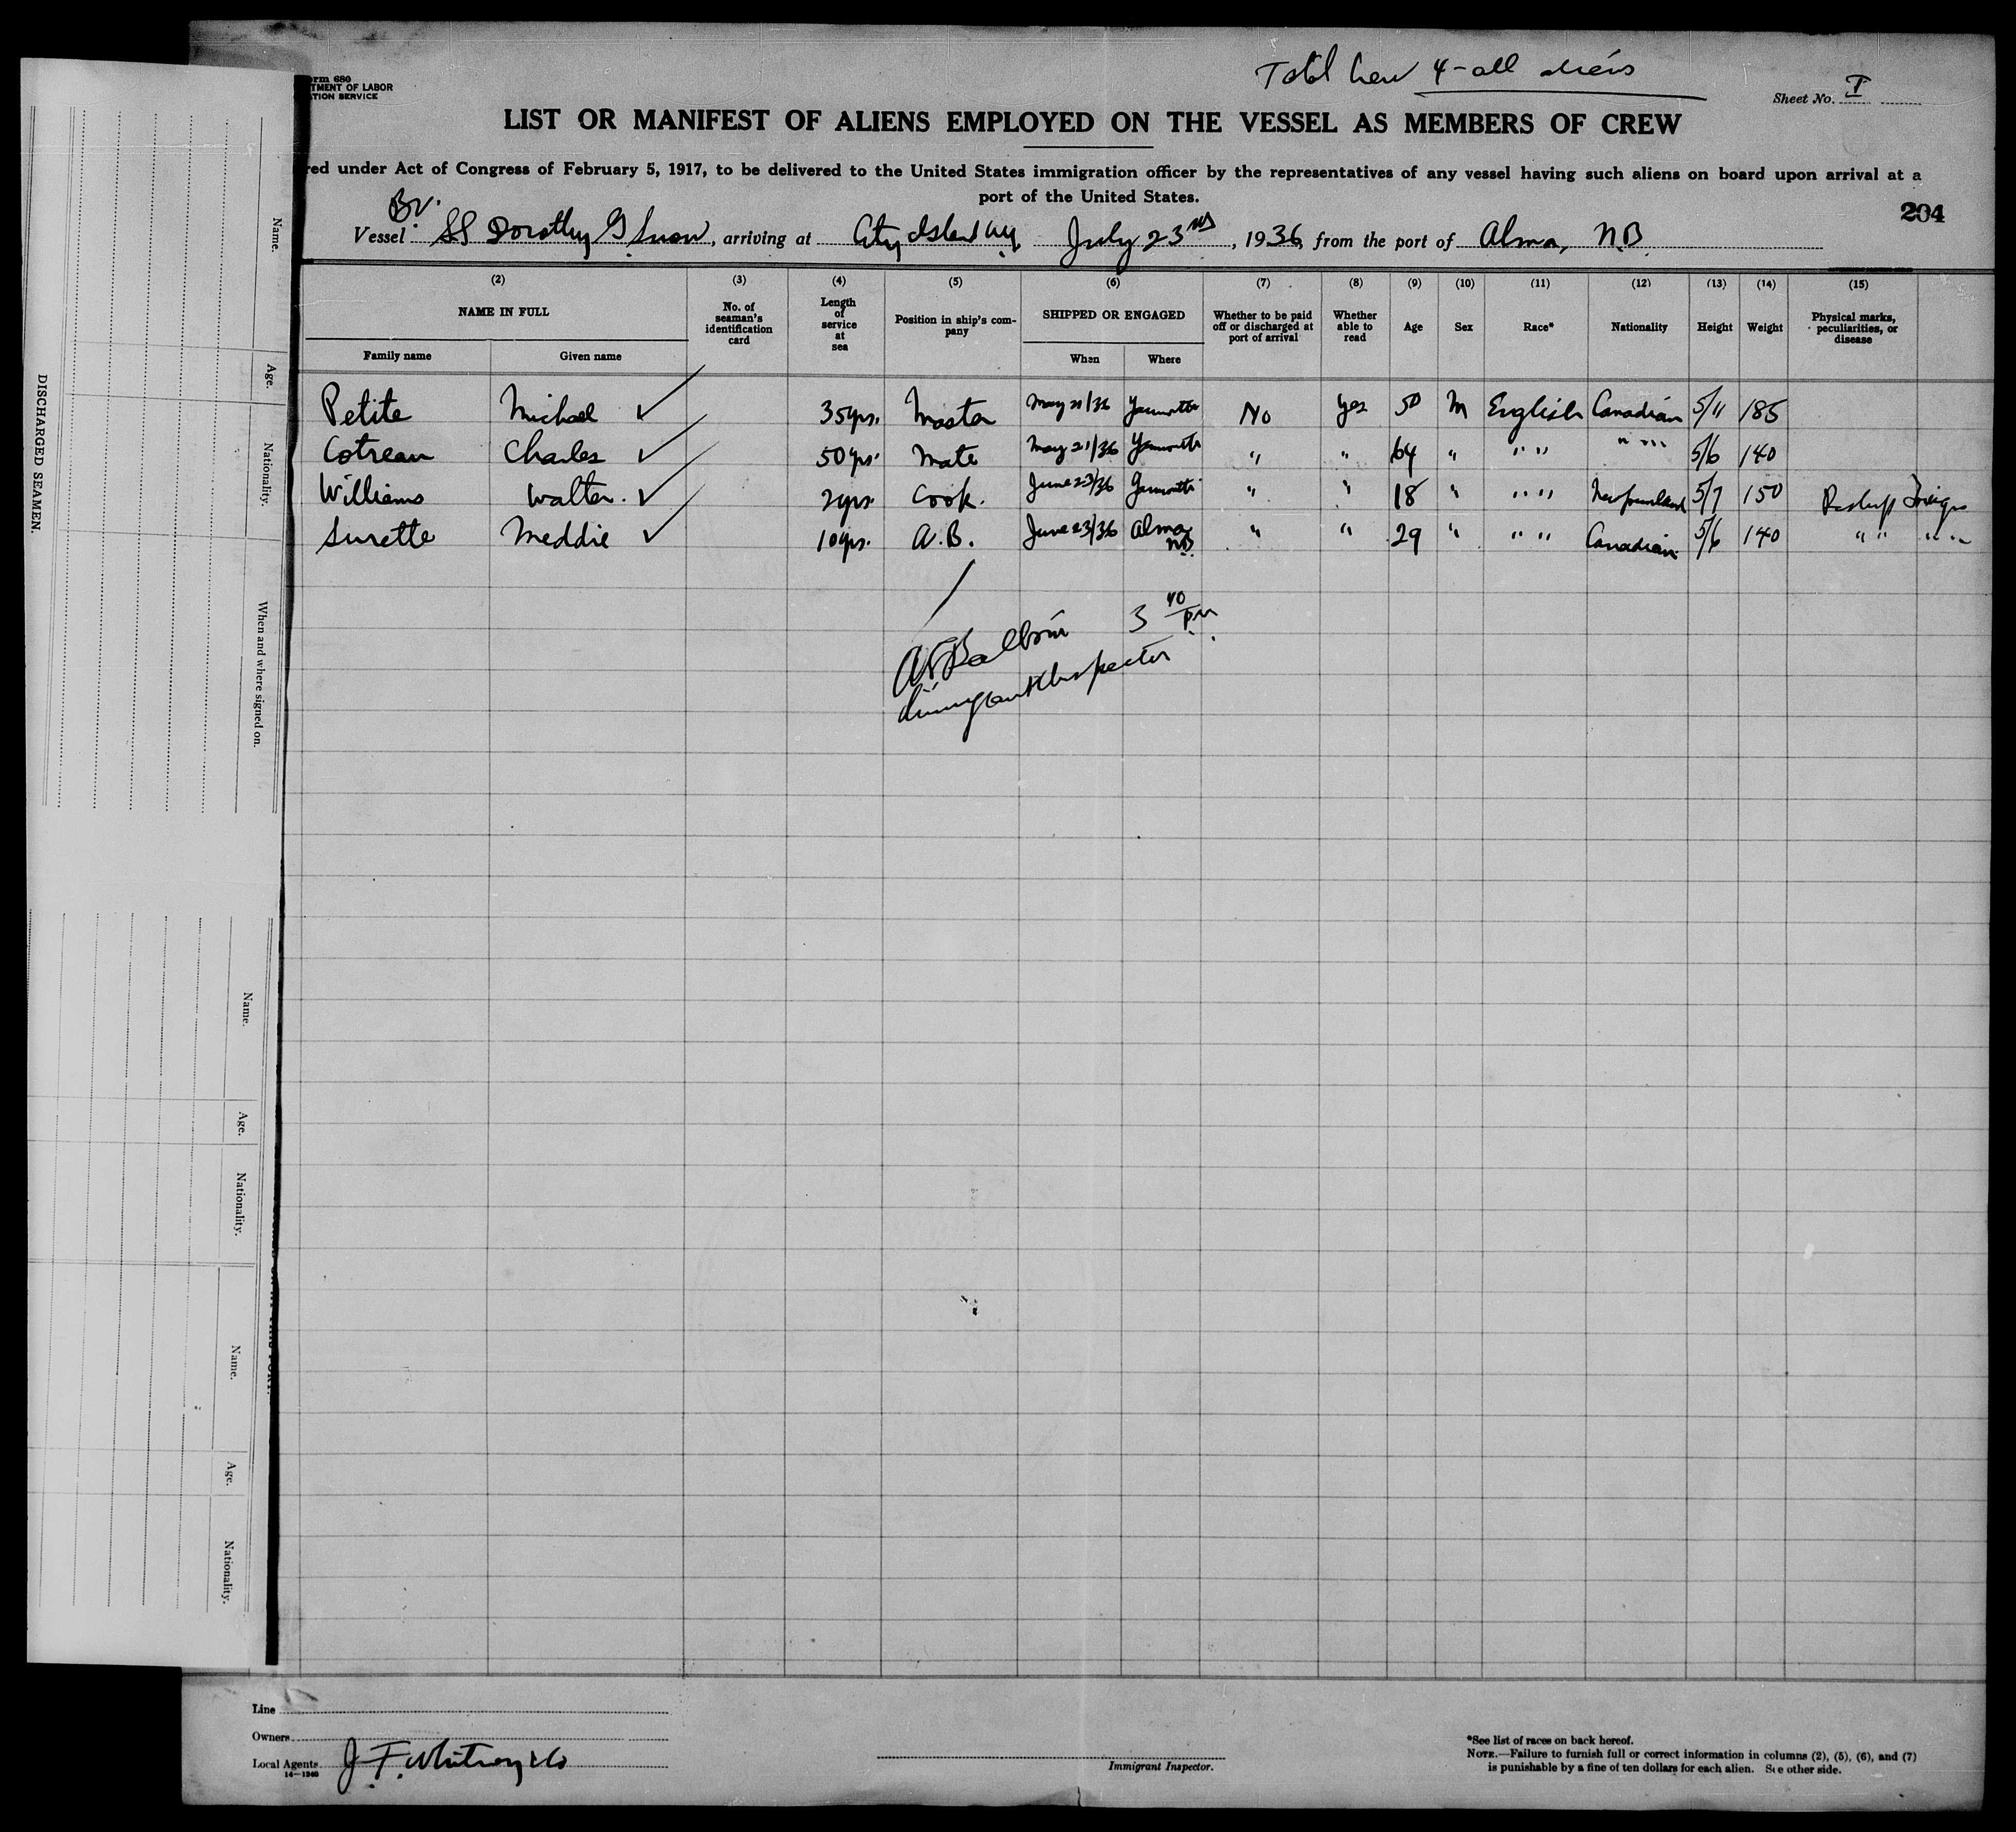 Total Crew 4 - all aliens
orm 680
TMENT OF LABOR
TION SERVICE
Sheet No. I
LIST OR MANIFEST OF ALIENS EMPLOYED ON THE VESSEL AS MEMBERS OF CREW
red under Act of Congress of February 5, 1917, to be delivered to the United States immigration officer by the representatives of any vessel having such aliens on board upon arrival at a
port of the United States.
204
Br.
Vessel SS Dorothy G Snow, arriving at City Island NY. July 23rd, 1936, from the port of Alma, N.B.
(2) (3) (4) (5) (6) (7) (8) (9) (10) (11) (12) (13) (14) (15)
NAME IN FULL No. of seaman's identification card Length of service at sea Position in ship's company SHIPPED OR ENGAGED Whether to be paid off or discharged at port of arrival Whether able to read Age Sex Race* Nationality Height Weight Physical marks, peculiarities, or disease
Family name Given name When Where
Petite Michael ✓ 35yrs. Master May 21/36 Yarmouth No Yes 50 M English Canadian 5/11 185
Cotreau Charles ✓ 50yrs. Mate May 21/36 Yarmouth " " 64 " " " " " 5/6 140
Williams Walter. ✓ 2yrs. Cook. June 23/36 Yarmouth " " 18 " " " Newfoundland 5/7 150 Foreign
Surette Meddie ✓ 10yrs. A.B. June 23/36 Alma NB " " 29 " " " Canadian 5/6 140 " " " "
3 40 pm
Immigrant Inspector
DISCHARGED SEAMEN.
Name.
Age.
Nationality.
When and where signed on.
Name.
Age.
Nationality.
Name.
Age.
Nationality.
Line
Owners
Local Agents J. F. Whitney & Co
14—1240
Immigrant Inspector.
*See list of races on back hereof.
NOTE.—Failure to furnish full or correct information in columns (2), (5), (6), and (7)
is punishable by a fine of ten dollars for each alien. See other side.